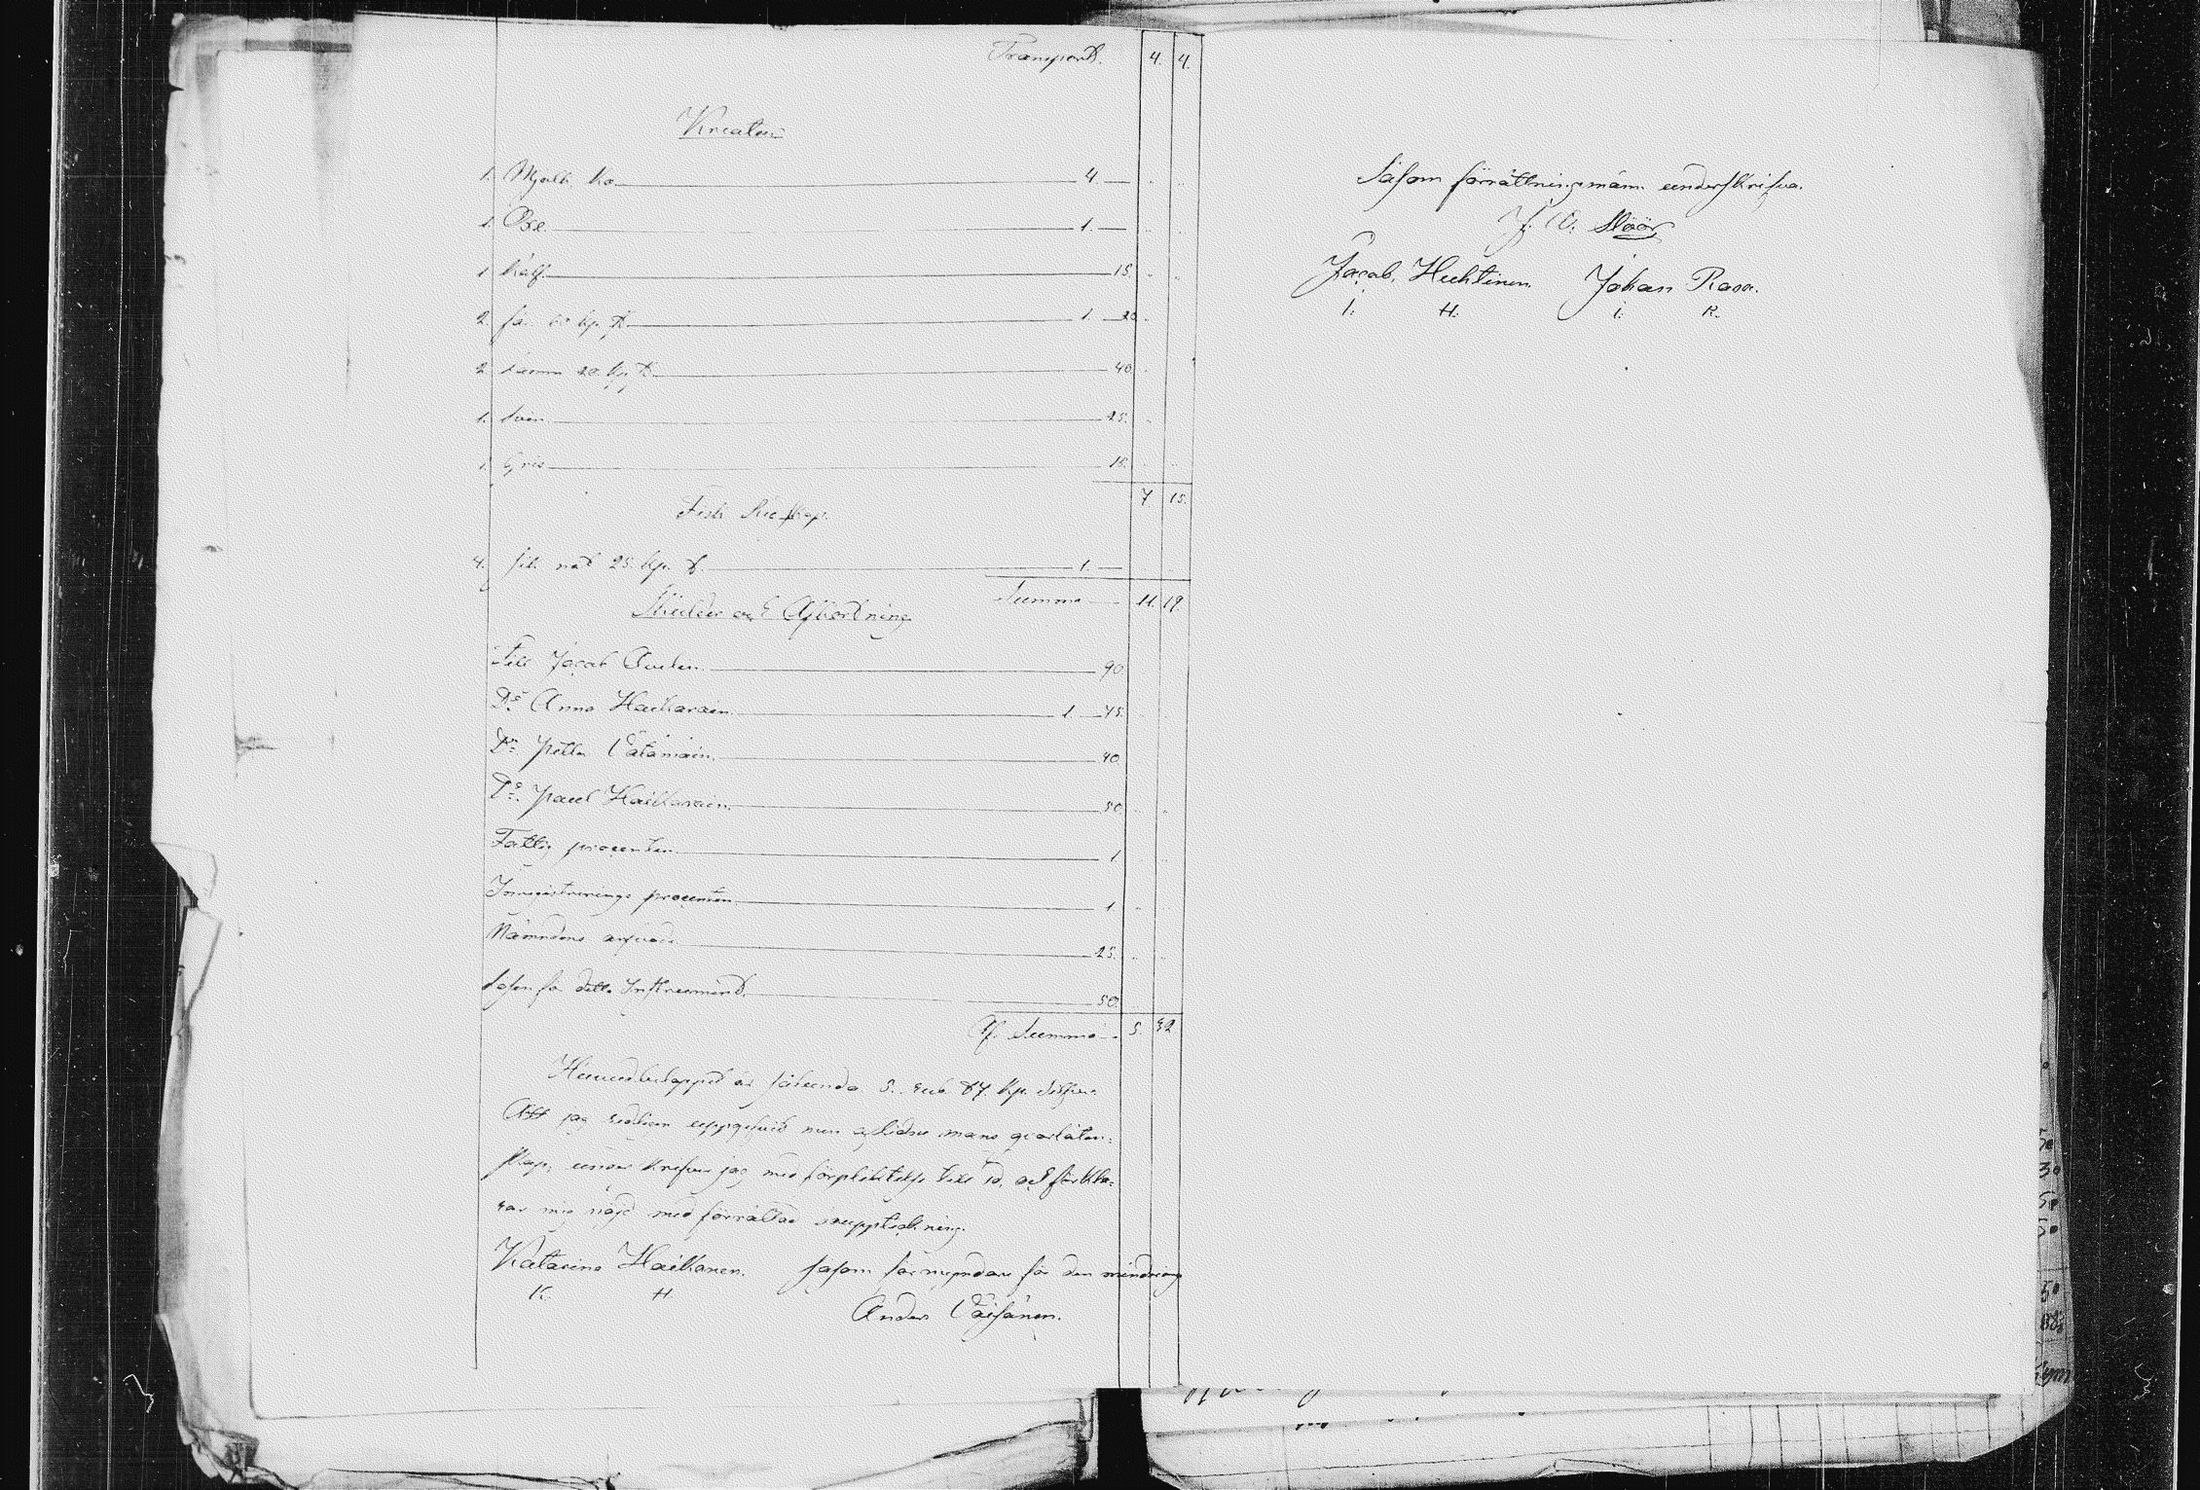 Transport. 4. 4.
Kreatur
1. Mjölk ko 4. —
1. Oxe 1. —
1. Kalf 15.
2. får 60 kp. st 1. 20.
2. Lamm 20 kp. st 40.
1. Svin 25.
1. Gris 15.
7. 15.
Fisk Redskap.
4. nät 25. kp. st. 1. —
Summa 11. 19.
Skulder och Afkortning
Till Jacob 90.
Do Anna Haikarain 1. 75.
Do Petter Vätämäin 40.
Do Paul Haikarain 50.
Fattig procenten 1
Inregistrerings procenten 1.
Nämndens arfvode 25.
Lösen för detta Instrument. 50.
Af. Summa 5. 32
Hufvudbeloppet är således 5. rub. 87. kp. silfver.
Att jag redligen uppgifvit min aflidne mans qvarlåten-
skap, under skrifver jag med förpliktelse till Ed, och förkla-
rar mig nöjd med förrättad uppteckning.
Katarina Haikanen. såsom förmyndare för den mindreårig
K. H
Anders Väisänen.
Såsom förrättningsmänn underskrifva.
J. W. Slöör
Jacob. Huhtinen Johan Rasa.
I. H. I. R.
50
30
50
50
50